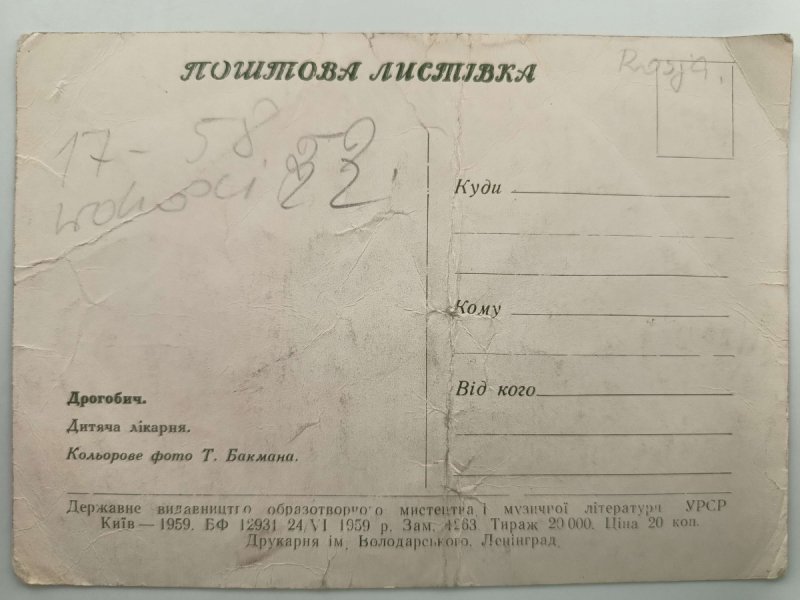 ПОШТОВА ЛИСТІВКА
Rosja.
17 - 58
22.
Куди
Кому
Від кого
Дрогобич.
Дитяча лікарня.
Кольорове фото Т. Бакмана.
Державне видавництво образотворчого мистецтва і музичної літератури УРСР
Київ — 1959. БФ 12931 24/VI 1959 р. Зам. 4263. Тираж 20 000. Ціна 20 коп.
Друкарня ім. Володарського. Ленінград.